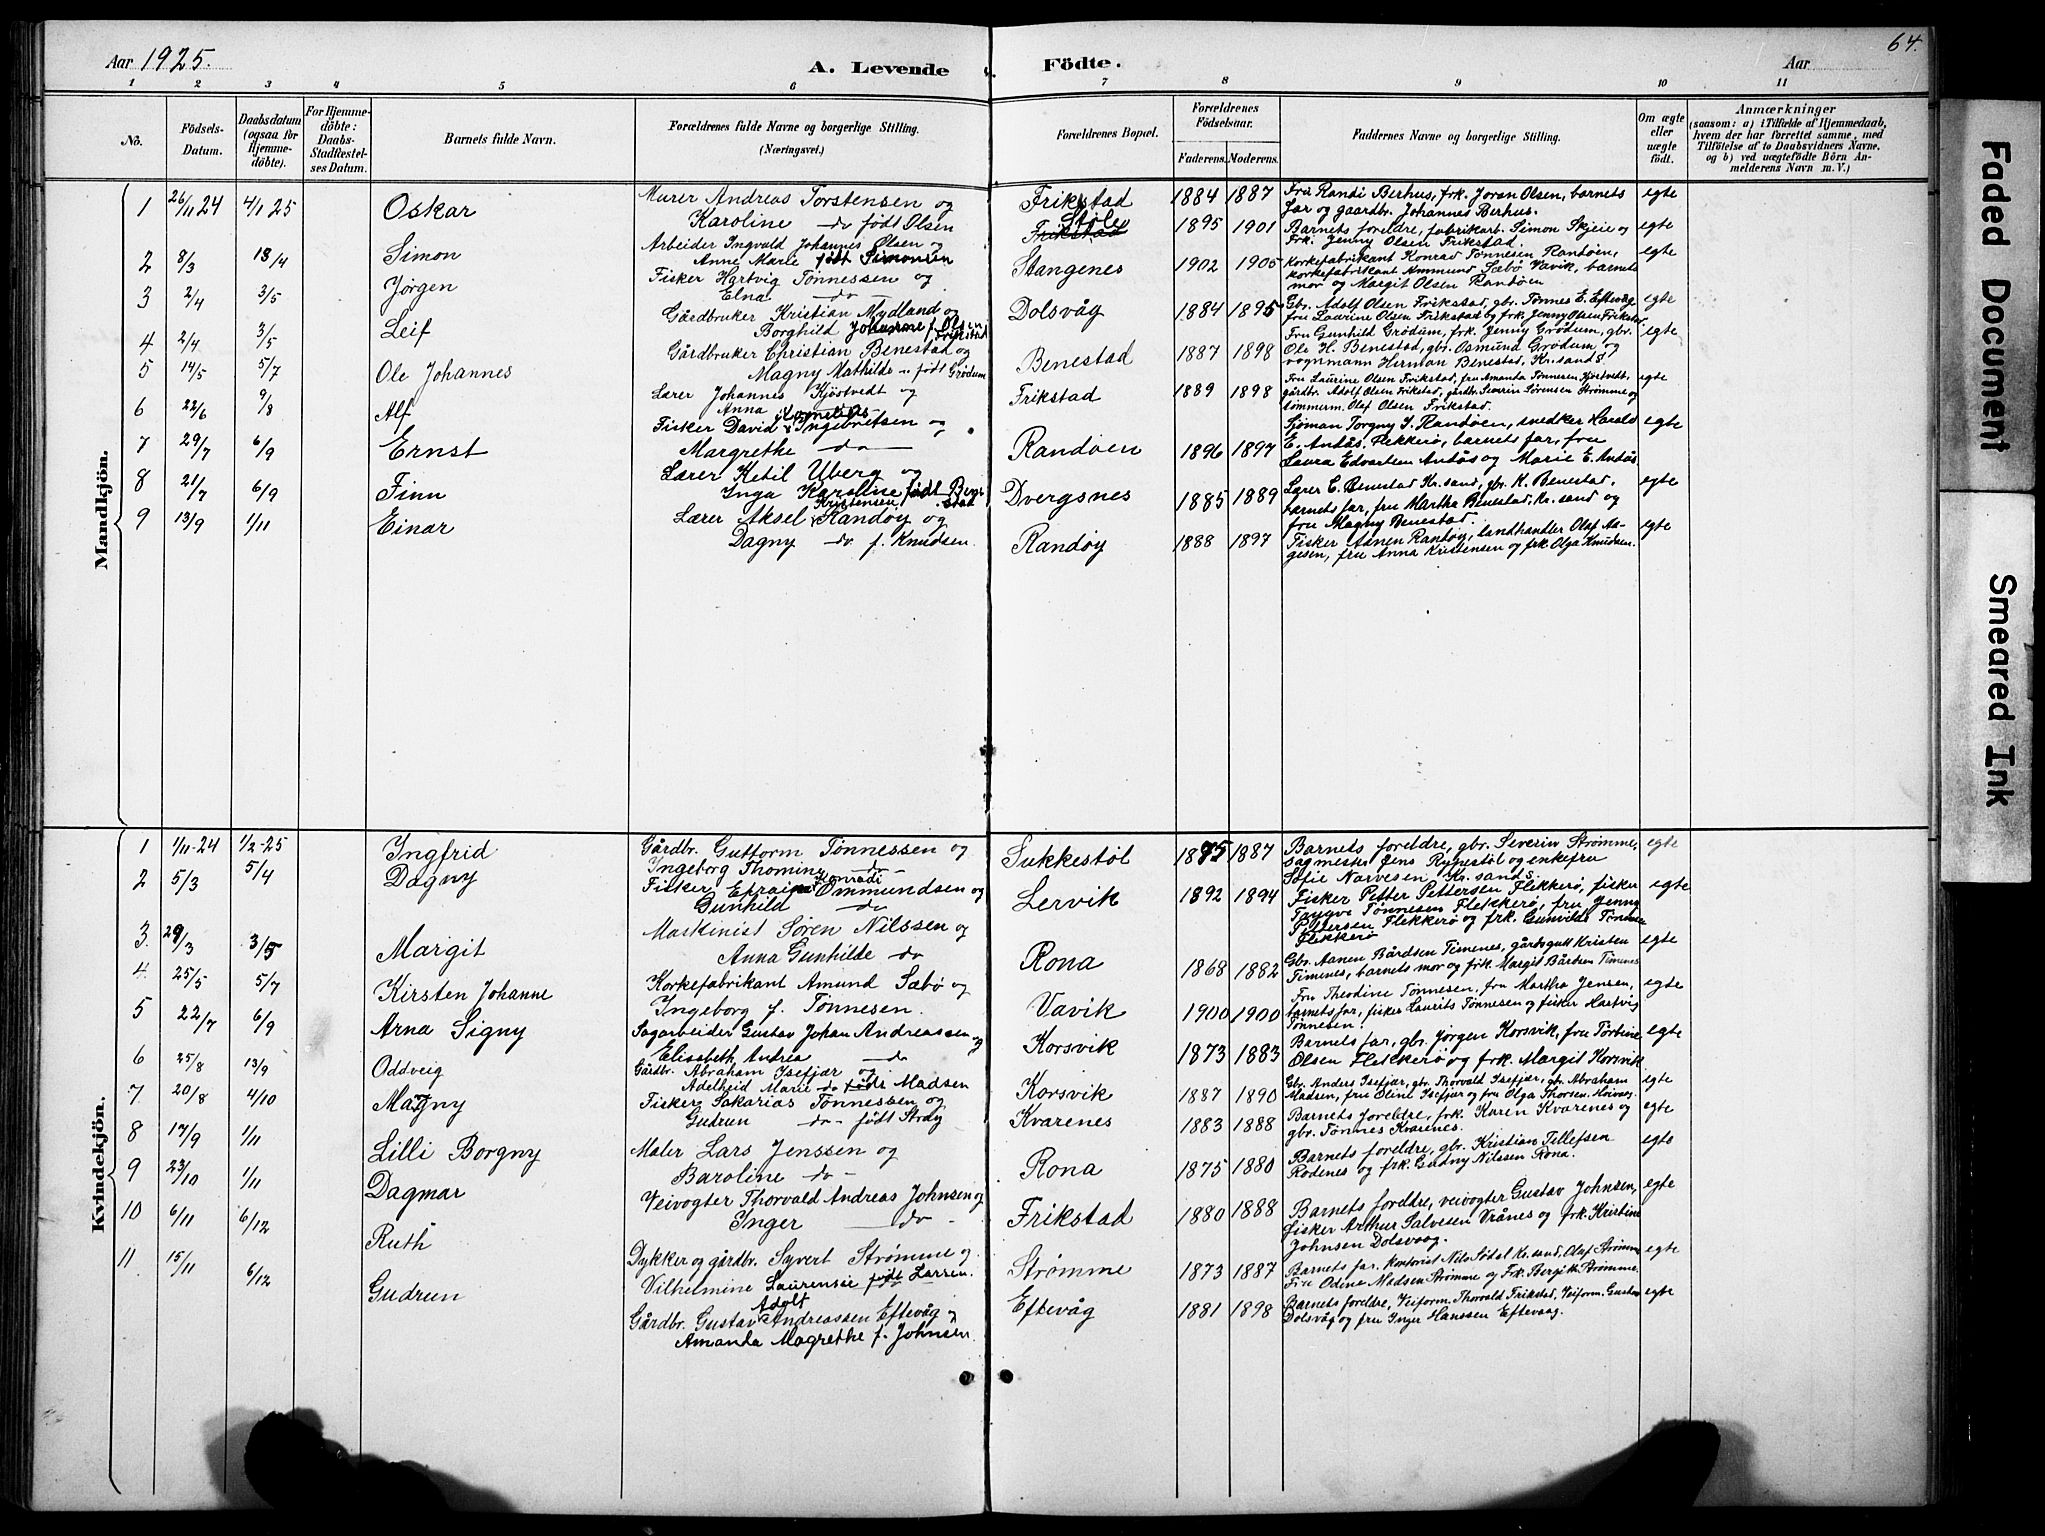 Aar 1925.
A. Levende Födte.
Aar
64.
1 2 3 4 5 6 7 8 9 10 11
No.
Födsels-Datum.
Daabsdatum (ogsaa for Hjemme-döbte).
For Hjemme-döbte: Daabs-Stadfæstel-ses Datum.
Barnets fulde Navn.
Forældrenes fulde Navne og borgerlige Stilling. (Næringsvei.)
Forældrenes Bopæl.
Forældrenes Födselsaar.
Faderens. Moderens.
Faddernes Navne og borgerlige Stilling.
Om ægte eller uægte födt.
Anmærkninger
(saasom: a) i Tilfælde af Hjemmedaab, hvem der har forrettet samme, med Tilföielse af to Daabsvidners Navne, og b) ved uægtefödte Börn An-melderens Navn m. V.)
Mandkjön.
1 26/11 24 4/1 25 Oskar
Murer Andreas Torstensen og
Karoline do født Olsen
Frikstad 1884 1887
Fru Randi Berhus, frk. Joran Olsen, barnets
far og gaardbr. Johannes Berhus.
egte
2 8/3 13/4 Simon
Arbeider Ingvald Johannes Olsen og
Anne Marie født Simonsen
Støle
Frikstad 1895 1901
Barnets foreldre, fabrikarb. Simon Skjeie og
Frk. Jenny Olsen Frikstad.
egte
3 2/4 3/5 Jørgen
Fisker Hartvig Tønnessen og
Elna do
Stangenes 1902 1905
Korkefabrikant Konrad Tønnesen Randøen,
korkefabrikant Ammund Sæbø Vavik, barnets
mor og Margit Olsen Randøen
egte
4 2/4 3/5 Leif
Gårdbruker Kristian Mydland og
Borghild Johanne f. Olsen
Frikstad
Dolsvåg 1884 1895
Gbr. Adolf Olsen Frikstad, gbr. Tønnes E. Eftevåg
fru Laurine Olsen Frikstad og frk. Jenny Olsen Frikstad
egte
5 14/5 5/7 Ole Johannes
Gårdbruker Christian Benestad og
Magny Mathilde " født Grødum
Benestad 1887 1898
Fru Gunhild Grødum, frk. Jenny Grødum, gbr.
Ole H. Benestad, gbr. Osmund Grødum og
vognmann Herman Benestad, Kr.sand S
egte
6 22/6 9/8 Alf
Lærer Johannes Kjøstvedt og
Anna do
Frikstad 1889 1898
Fru Laurine Olsen Frikstad, fru Amanda Tønnesen Kjøstvedt,
gårdbr. Adolf Olsen Frikstad, gårdbr. Severin Sørensen Strømme og
tømmerm. Olaf Olsen Frikstad.
egte
7 29/7 6/9 Ernst
Kornelius
Fisker David Ingebretsen og
Margrethe do
Randøen 1896 1897
Sjøman Torgny I. Randøen, snedker Harald
E. Andås Flekkerø, barnets far, fru
Laura Edvartsen Andås og Marie E. Andås.
egte
8 21/7 6/9 Finn
Lærer Ketil Uberg og
Inga Karoline født Berg-
stad
Dvergsnes 1885 1889
Lærer C. Benestad Kr.sand, gbr. K. Benestad,
barnets far, fru Martha Benestad, Kr.sand og
fru Magny Benestad.
egte
9 13/9 1/11 Einar
Kristensen
Lærer Aksel Randøy og
Dagny do f. Knudsen
Randøy 1888 1897
Fisker Asnen Randøy, landhandler Olaf Aa-
gesen, fru Anna Kristensen og frk. Olga Knudsen.
egte
Kvindekjön.
1 1/11-24 1/2-25 Ingfrid
Gårdbr. Guttorm Tønnessen og
Ingeborg Thomine do
Sukkestøl 1875 1887
Barnets foreldre, gbr. Severin Strømme,
sagmester Jens Rypestøl og enkefru
Sofie Narvesen Kr.sand S.
egte
2 5/3 5/4 Dagny
Konradi
Fisker Efraim Ommundsen og
Gunhild do
Lervik 1892 1894
Fisker Petter Pettersen Flekkerø, fisker
Trygve Tønnesen Flekkerø, fru Jenny
Pettersen Flekkerø og frk. Gunvilda Tønnes
Flekkerø
egte
3. 29/3 3/5 Margit
Maskinist Søren Nilssen og
Anna Gunhilde do
Rona 1868 1882
Gbr. Aanen Bårdsen Timenes, gårdsgutt Kristen
Timenes, barnets mor og frk. Margit Bårdsen Timenes
egte
4. 25/5 5/7 Kirsten Johanne
Korkefabrikant Amund Sæbø og
Ingeborg f. Tønnesen.
Vavik 1900 1900
Fru Theodine Tønnesen, fru Martha Jensen,
barnets far, fisker Laurits Tønnesen og fisker Hartvig
Tønnesen.
egte
5 22/7 6/9 Arna Signy
Sagarbeider Gustav Johan Andreassen og
Elisabeth Andrea do
Korsvik 1873 1883
Barnets far, gbr. Jørgen Korsvik, fru Torbine
Olsen Flekkerø og frk. Margit Korsvik
egte
6 25/8 13/9 Oddveig
Gårdbr. Abraham Isefjær og
Adelheid Marie do født Madsen
Korsvik 1887 1890
Gbr. Anders Isefjær, gbr. Thorvald Isefjær, gbr. Abraham
Madsen, fru Oline Isefjær og fru Olga Thorsen Høivåg.
egte
7 20/8 4/10 Magny
Fisker Sakarias Tønnessen og
Gudrun do født Stray
Kvarenes 1883 1888
Barnets foreldre, frk. Karen Kvarenes og
gbr. Tønnes Kvarenes.
egte
8 17/9 1/11 Lilli Borgny
Maler Lars Jenssen og
Baroline do
Rona 1875 1880
Barnets foreldre, gbr. Kristian Tellefsen
Rodenes og frk. Gudny Nilssen Rona.
egte
9 23/10 1/11 Dagmar
Veivogter Thorvald Andreas Johnsen og
Inger do
Frikstad 1880 1888
Barnets foreldre, veivogter Gustav Johnsen,
fisker Arthur Salvesen Vrånes og frk. Kristine
Johnsen Dolsvaag.
egte
10 6/11 6/12 Ruth
Dykker og gårdbr. Syvert Strømme og
Vilhelmine Laurensse født Larsen.
Strømme 1873 1887
Barnets far, kontorist Nils Sødal Kr.sand, Olaf Strømme
Fru Odine Madsen Strømme og Frk. Bergith Strømme.
egte
11 15/11 6/12 Gudrun
Adolf
Gårdbr. Gustav Andreassen Eftevåg og
Amanda Magrethe f. Johnsen.
Eftevåg 1881 1898
Barnets foreldre, Veiform. Thorvald Frikstad, Veiform. Gustav
Dolsvåg og fru Inger Hanssen Eftevaag.
egte
Faded Document
Smeared Ink